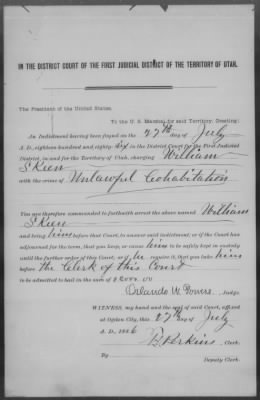 IN THE DISTRICT COURT OF THE FIRST JUDICIAL DISTRICT OF THE TERRITORY OF UTAH.
The President of the United States.
To the U. S. Marshal for said Territory, Greeting:
An Indictment having been found on the 27th day of July
A. D., eighteen hundred and eighty-six in the District Court for the First Judicial
District, in and for the Territory of Utah, charging William
Skeen
with the crime of Unlawful Cohabitation
You are therefore commanded to forthwith arrest the above named William
Skeen
and bring him before that Court, to answer said indictment, or if the Court has
adjourned for the term, that you keep, or cause him to be safely kept in custody
until the further order of this Court, or if he require it, that you take him
before the Clerk of this Court
to be admitted to bail in the sum of
Orlando W. Powers, Judge.
WITNESS, my hand and the seal of said Court, affixed
at Ogden City, this 27th day of July
A. D., 1886
Perkins Clerk.
Deputy Clerk.